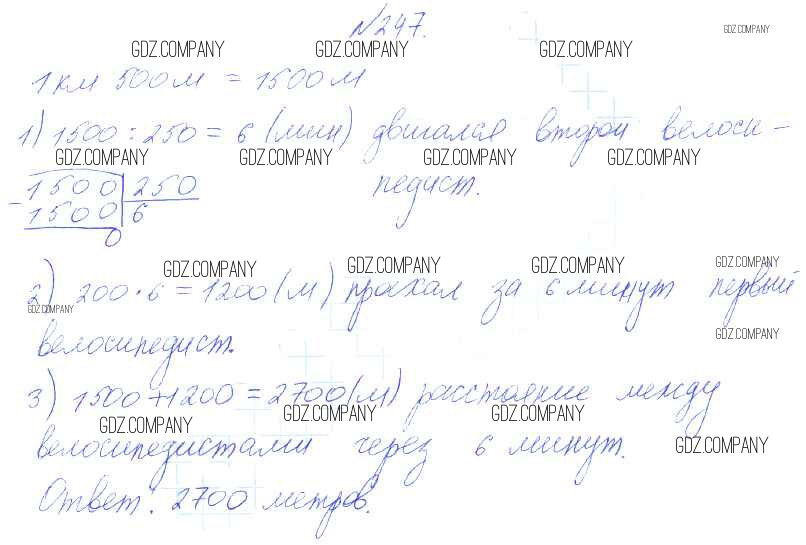 №247.
GDZ.COMPANY
GDZ.COMPANY GDZ.COMPANY GDZ.COMPANY
1 км 500 м = 1500 м
1) 1500 : 250 = 6 (мин) двигался второй велоси-
GDZ.COMPANY GDZ.COMPANY GDZ.COMPANY GDZ.COMPANY
педист.
1500 250
- 1500 6
0
GDZ.COMPANY GDZ.COMPANY GDZ.COMPANY GDZ.COMPANY
2) 200 · 6 = 1200 (м) проехал за 6 минут первый
GDZ.COMPANY
GDZ.COMPANY
велосипедист.
3) 1500 + 1200 = 2700 (м) расстояние между
GDZ.COMPANY GDZ.COMPANY GDZ.COMPANY
велосипедистами через 6 минут.
GDZ.COMPANY
Ответ: 2700 метров.